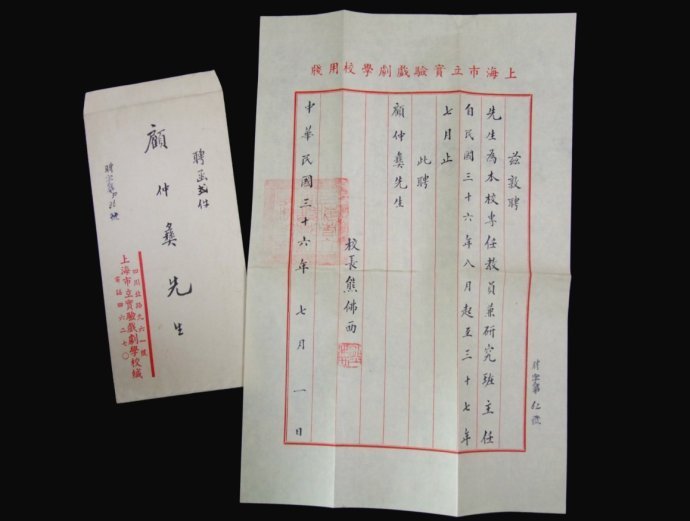 上海市立實驗戲劇學校用牋
茲敦聘
先生為本校專任教員兼研究班主任
自民國三十六年八月起至三十七年
七月止
此聘
顧仲彝先生
校長熊佛西
中華民國三十六年七月一日
聘字第
號
聘函貳件
顧仲彝先生
聘字第
號
四川北路九六一號
上海市立實驗戲劇學校緘
電話四六二七〇